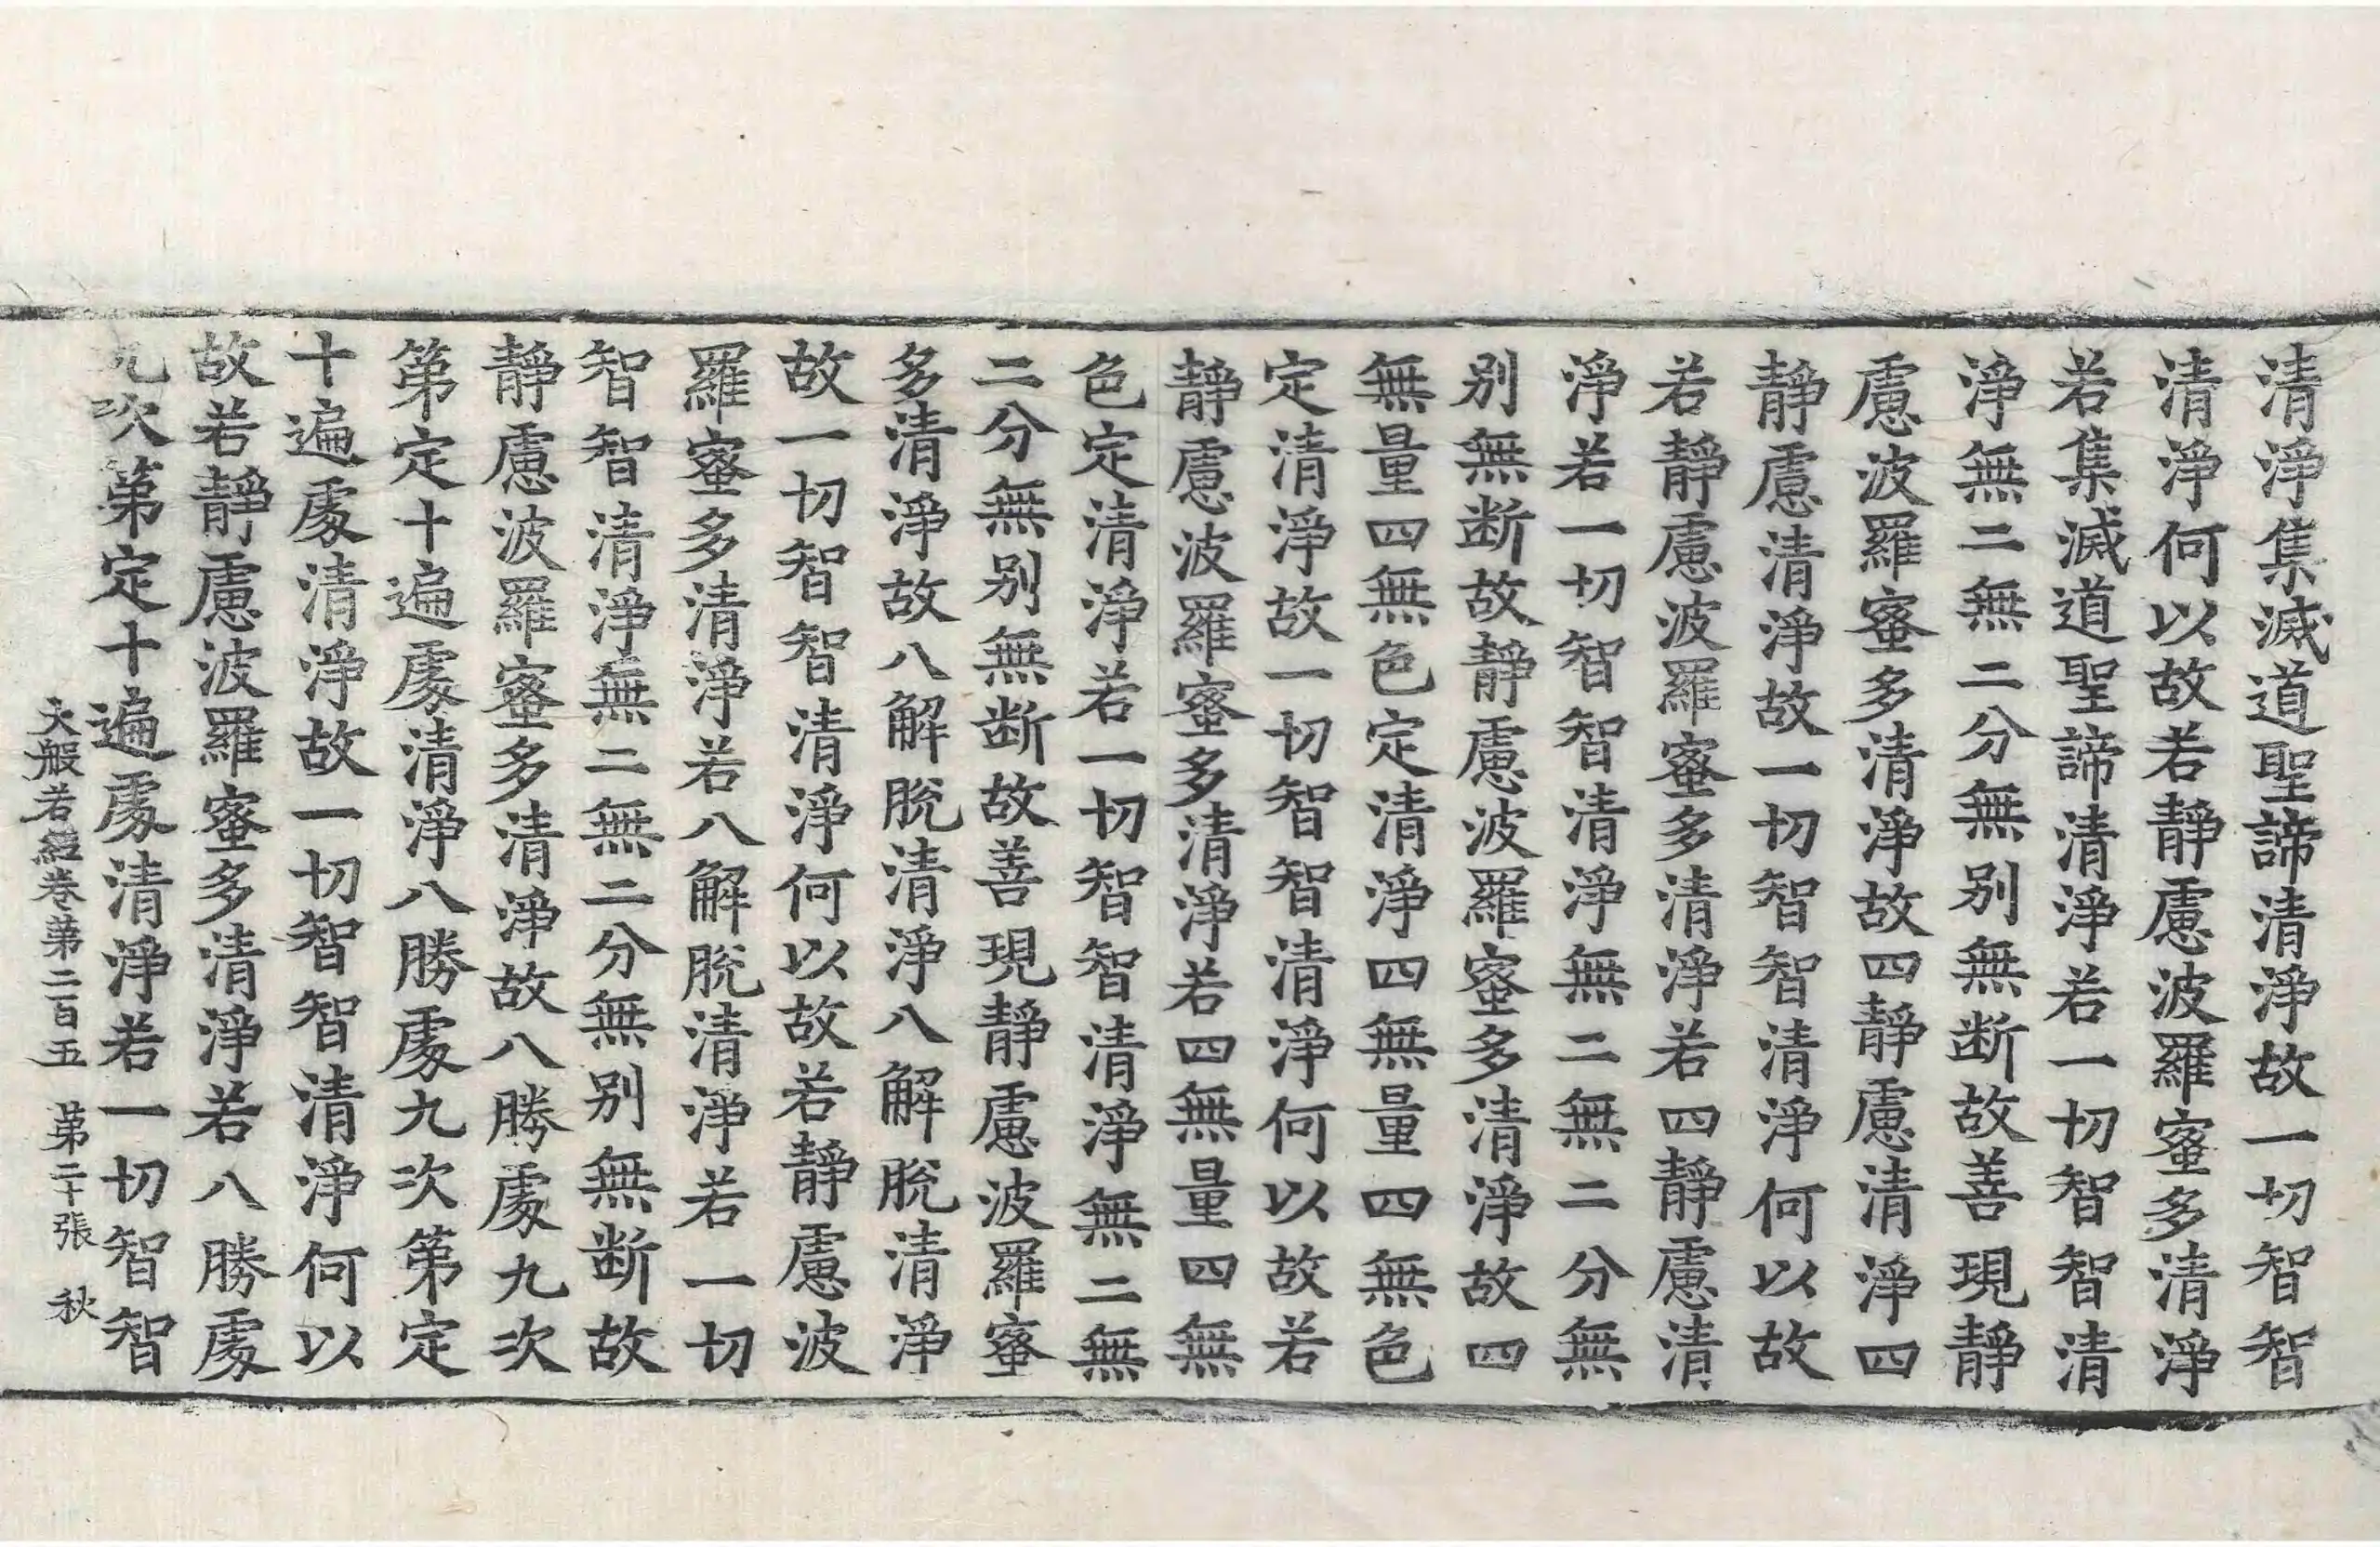 清淨集滅道聖諦清淨故一切智智
清淨何以故若靜慮波羅蜜多清淨
若集滅道聖諦清淨若一切智智清
淨無二無二分無别無断故善現靜
慮波羅蜜多清淨故四靜慮清淨四
靜慮清淨故一切智智清淨何以故
若靜慮波羅蜜多清淨若四靜慮清
淨若一切智智清淨無二無二分無
别無断故靜慮波羅蜜多清淨故四
無量四無色定清淨四無量四無色
定清淨故一切智智清淨何以故若
靜慮波羅蜜多清淨若四無量四無
色定清淨若一切智智清淨無二無
二分無别無断故善現靜慮波羅蜜
多清淨故八解脫清淨八解脫清淨
故一切智智清淨何以故若靜慮波
羅蜜多清淨若八解脫清淨若一切
智智清淨無二無二分無别無断故
靜慮波羅蜜多清淨故八勝處九次
第定十遍處清淨八勝處九次第定
十遍處清淨故一切智智清淨何以
故若靜慮波羅蜜多清淨若八勝處
九次第定十遍處清淨若一切智智
大般若經卷第二百五 第二十張 秋